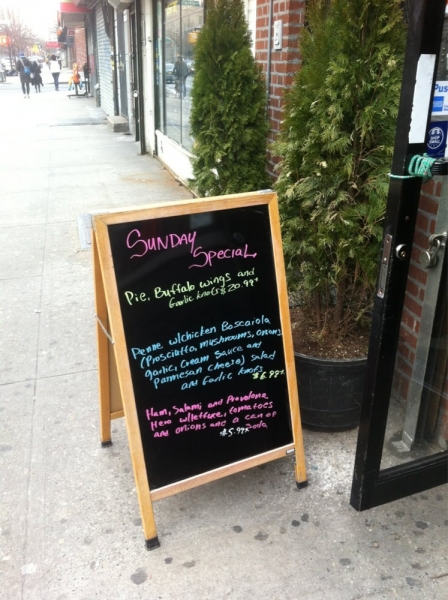 SUNDAY
SPECIAL
Pie, Buffalo wings and
Garlic knots $20.99+
Penne w/chicken Boscaiola
(Prosciutto, mushrooms, onions
garlic, cream sauce and
Parmesan cheese) salad
and Garlic knots
$6.99+
Ham, Salami and Provolone
Hero w/lettuce, tomatoes
and onions and a can of
$5.99+ soda
Pus